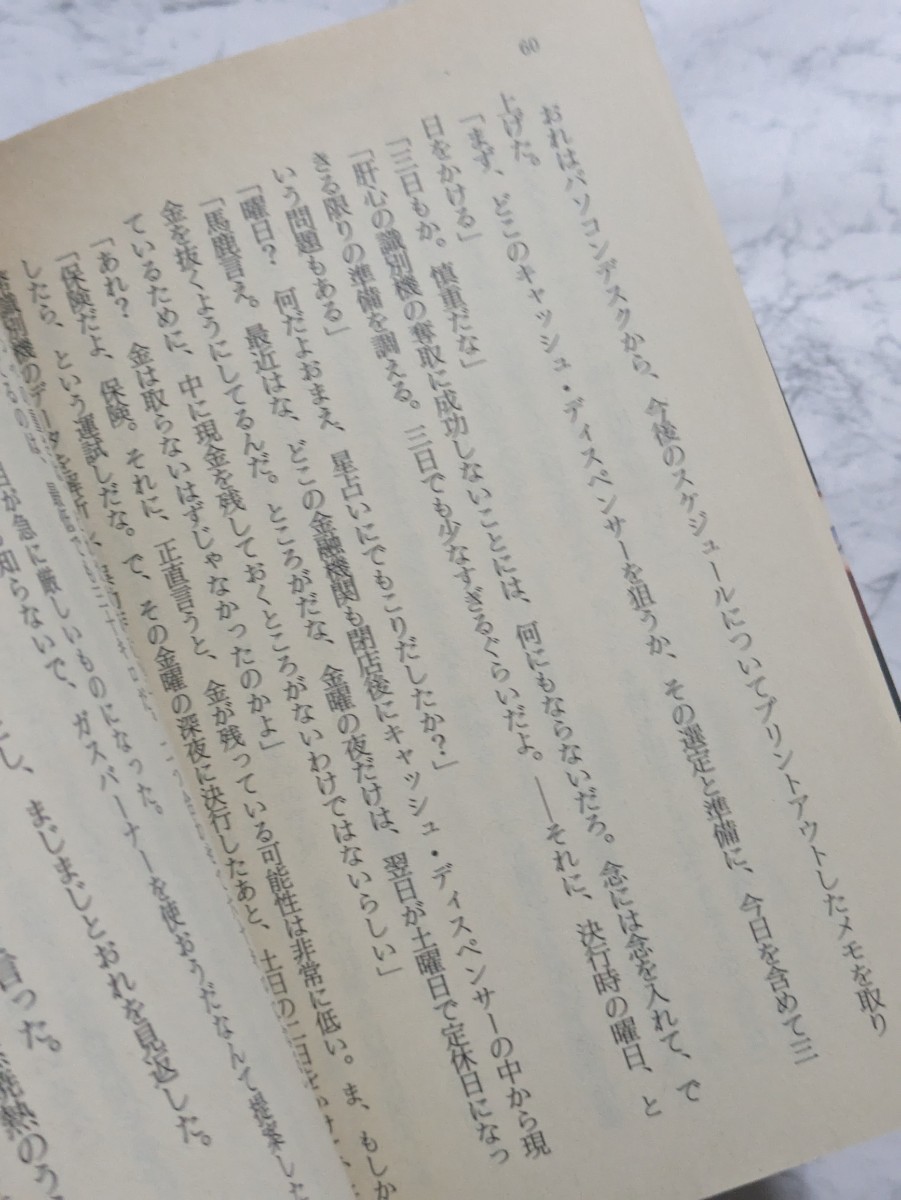 60
おれはパソコンデスクから、今後のスケジュールについてプリントアウトしたメモを取り
上げた。
「まず、どこのキャッシュ・ディスペンサーを狙うか、その選定と準備に、今日を含めて三
日をかける」
「三日もか。慎重だな」
「肝心の識別機の奪取に成功しないことには、何にもならないだろ。念には念を入れて、で
きる限りの準備を調える。三日でも少なすぎるぐらいだよ。――それに、決行時の曜日、と
いう問題もある」
「曜日？　何だよおまえ、星占いにでもこりだしたか？」
「馬鹿言え。最近はな、どこの金融機関も閉店後にキャッシュ・ディスペンサーの中から現
金を抜くようにしてるんだ。ところがだな、金曜の夜だけは、翌日が土曜日で定休日になっ
ているために、中に現金を残しておくところがないわけではないらしい」
「あれ？　金は取らないはずじゃなかったのかよ」
「保険だよ、保険。それに、正直言うと、金が残っている可能性は非常に低い。ま、もしか
したら、という運試しだな。で、その金曜の深夜に決行したあと、土日の二日を
識別機のデータを
日が急に厳しいものになった。
知らないで、ガスバーナーを使おうだなんて提案した
し、まじまじとおれを見返した。
った。